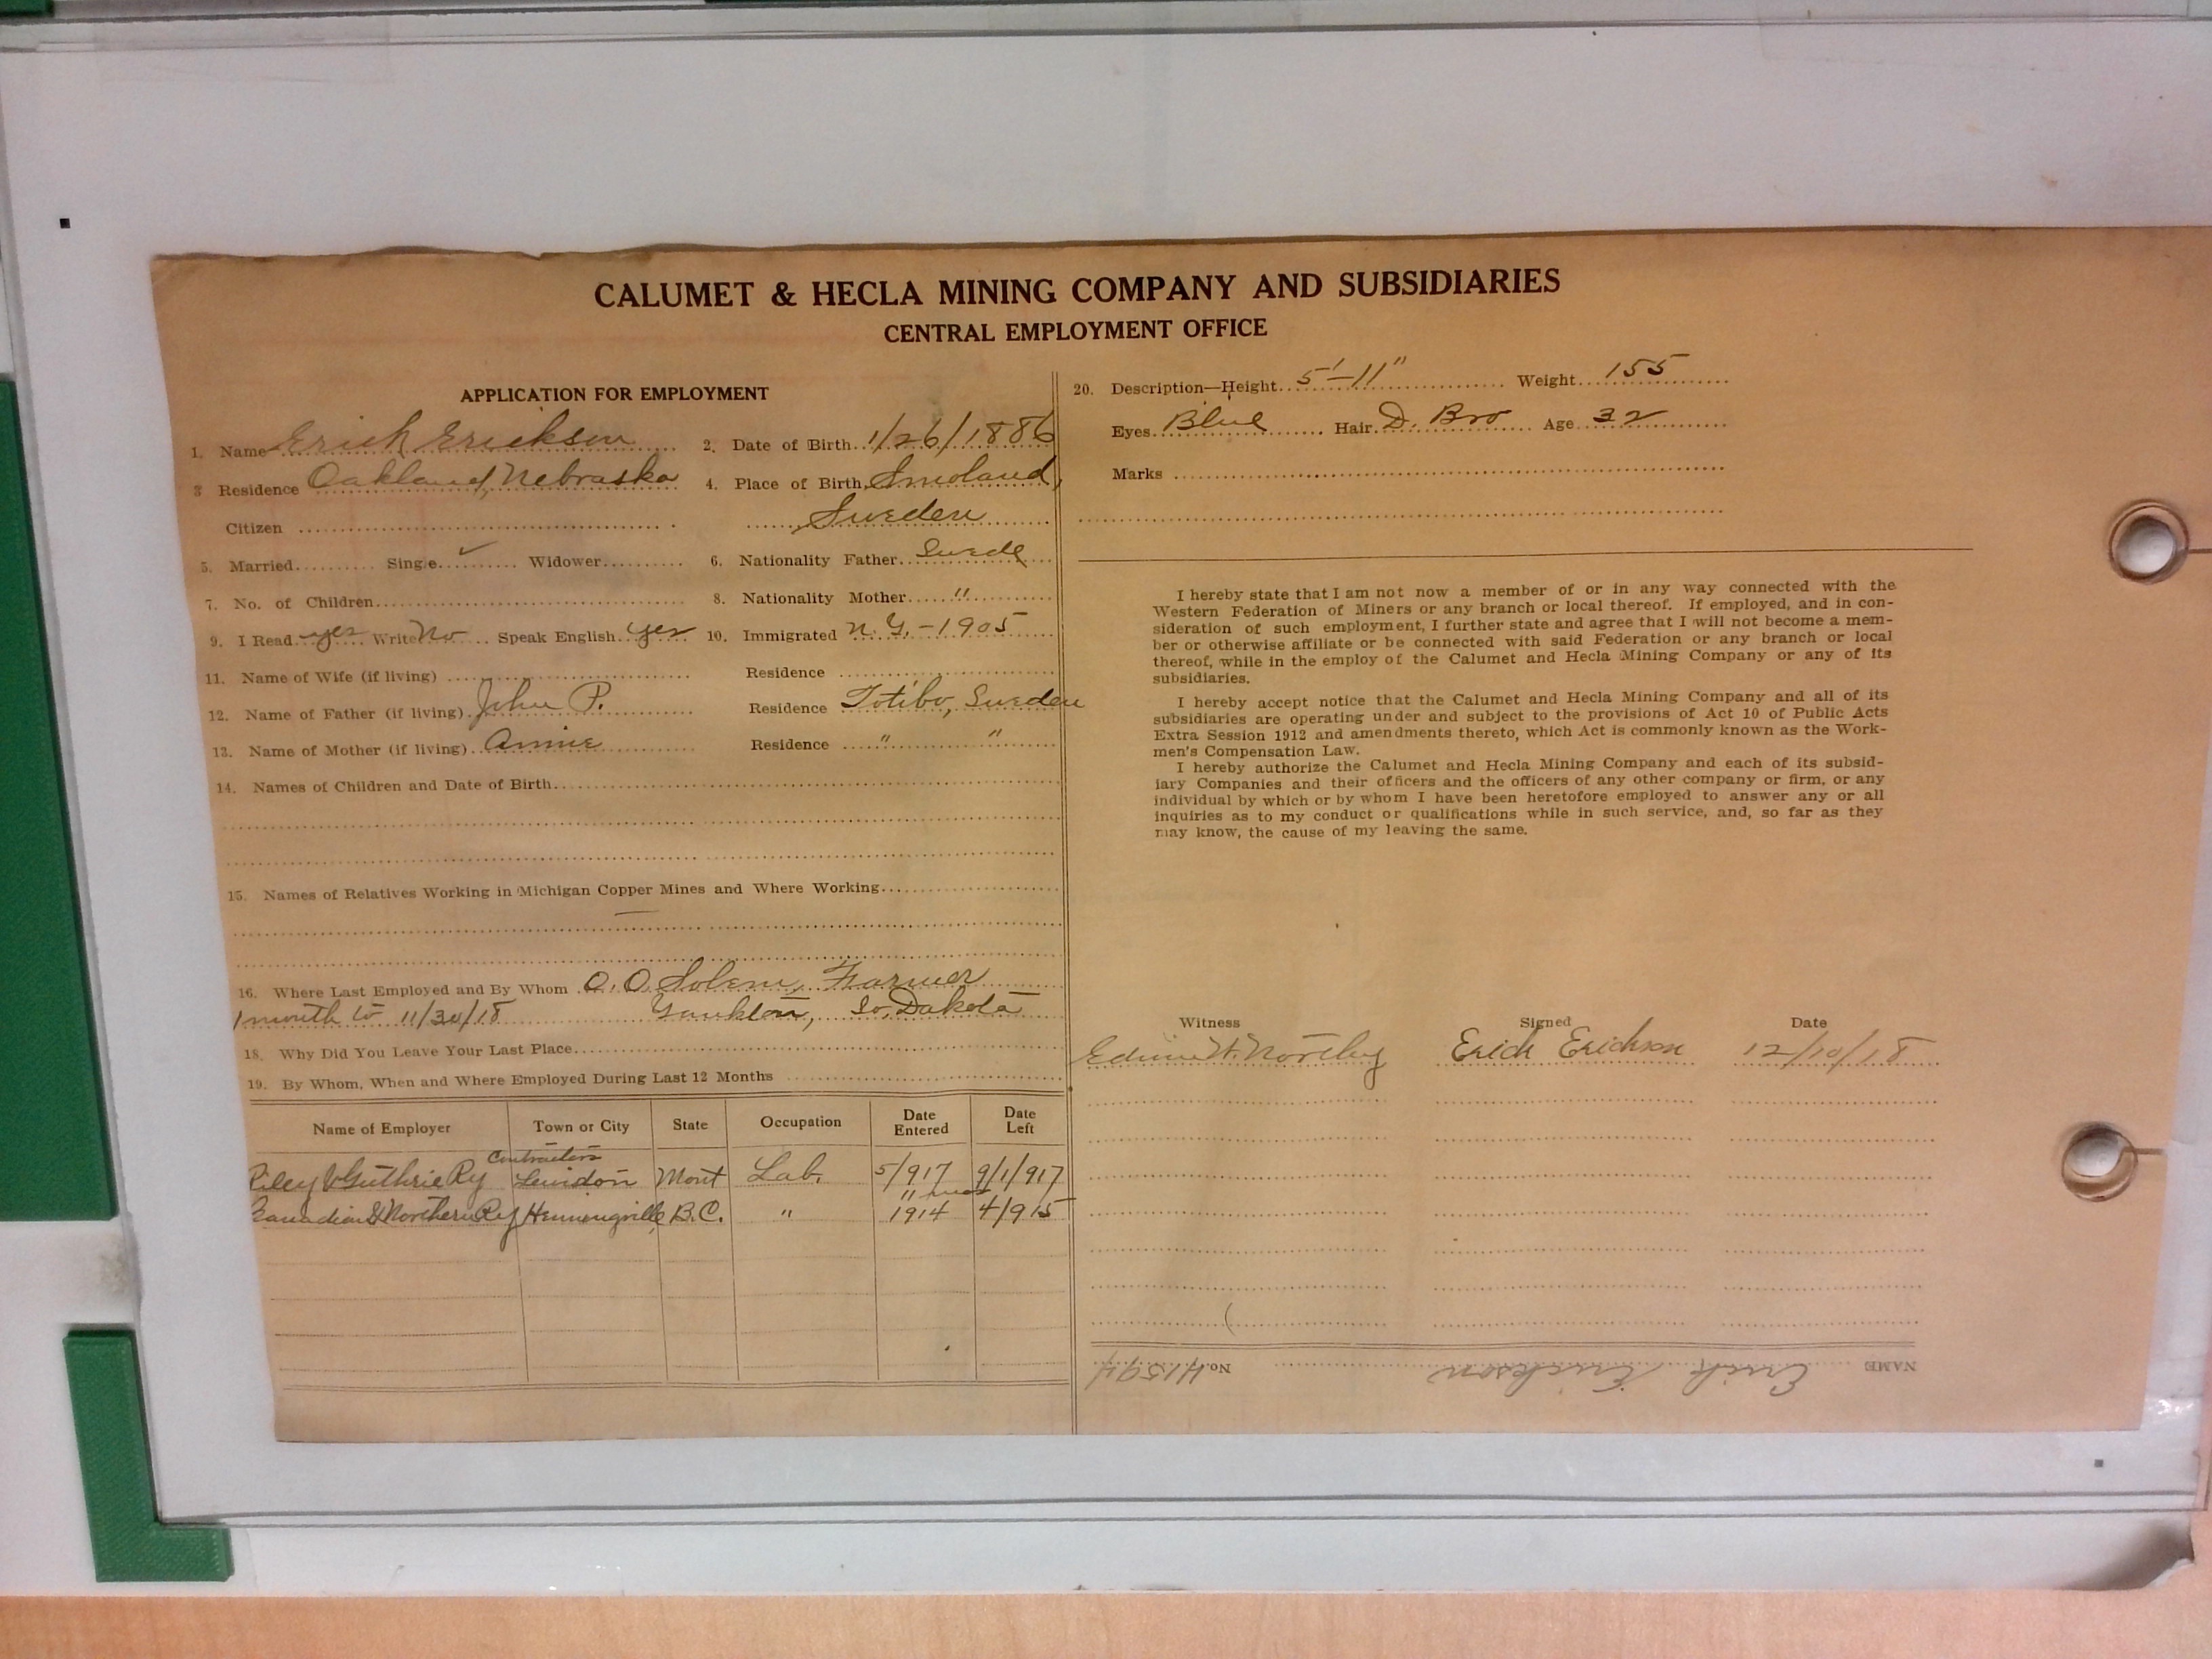 CALUMET & HECLA MINING COMPANY AND SUBSIDIARIES
CENTRAL EMPLOYMENT OFFICE
APPLICATION FOR EMPLOYMENT
1. Name Erick Erickson 2. Date of Birth 1/26/1886
3 Residence Oakland, Nebraska 4. Place of Birth Smoland,
Citizen Sweden
5. Married Single ✓ Widower 6. Nationality Father Swede
7. No. of Children 8. Nationality Mother "
9. I Read yes Write No Speak English yes 10. Immigrated N.Y. - 1905
11. Name of Wife (if living) Residence
12. Name of Father (if living) John P. Residence Totibo, Sweden
13. Name of Mother (if living) Annie Residence " "
14. Names of Children and Date of Birth
15. Names of Relatives Working in Michigan Copper Mines and Where Working
—
16. Where Last Employed and By Whom O. O. Solem, Farmer
1 month to 11/30/18 Yankton, So. Dakota
18. Why Did You Leave Your Last Place
19. By Whom, When and Where Employed During Last 12 Months
Name of Employer Town or City State Occupation Date Entered Date Left
Contractors
Riley & Guthrie Ry Mont Lab. 5/917 9/1/917
"
Canadian & Northern Ry B.C. " 1914 4/915
20. Description—Height 5'-11" Weight 155
Eyes Blue Hair D. Bro Age 32
Marks
I hereby state that I am not now a member of or in any way connected with the
Western Federation of Miners or any branch or local thereof. If employed, and in con-
sideration of such employment, I further state and agree that I will not become a mem-
ber or otherwise affiliate or be connected with said Federation or any branch or local
thereof, while in the employ of the Calumet and Hecla Mining Company or any of its
subsidiaries.
I hereby accept notice that the Calumet and Hecla Mining Company and all of its
subsidiaries are operating under and subject to the provisions of Act 10 of Public Acts
Extra Session 1912 and amendments thereto, which Act is commonly known as the Work-
men's Compensation Law.
I hereby authorize the Calumet and Hecla Mining Company and each of its subsid-
iary Companies and their officers and the officers of any other company or firm, or any
individual by which or by whom I have been heretofore employed to answer any or all
inquiries as to my conduct or qualifications while in such service, and, so far as they
may know, the cause of my leaving the same.
Witness Signed Date
Edwin H. Northey Erick Erickson 12/10/18
NAME Erick Erickson No. 41594